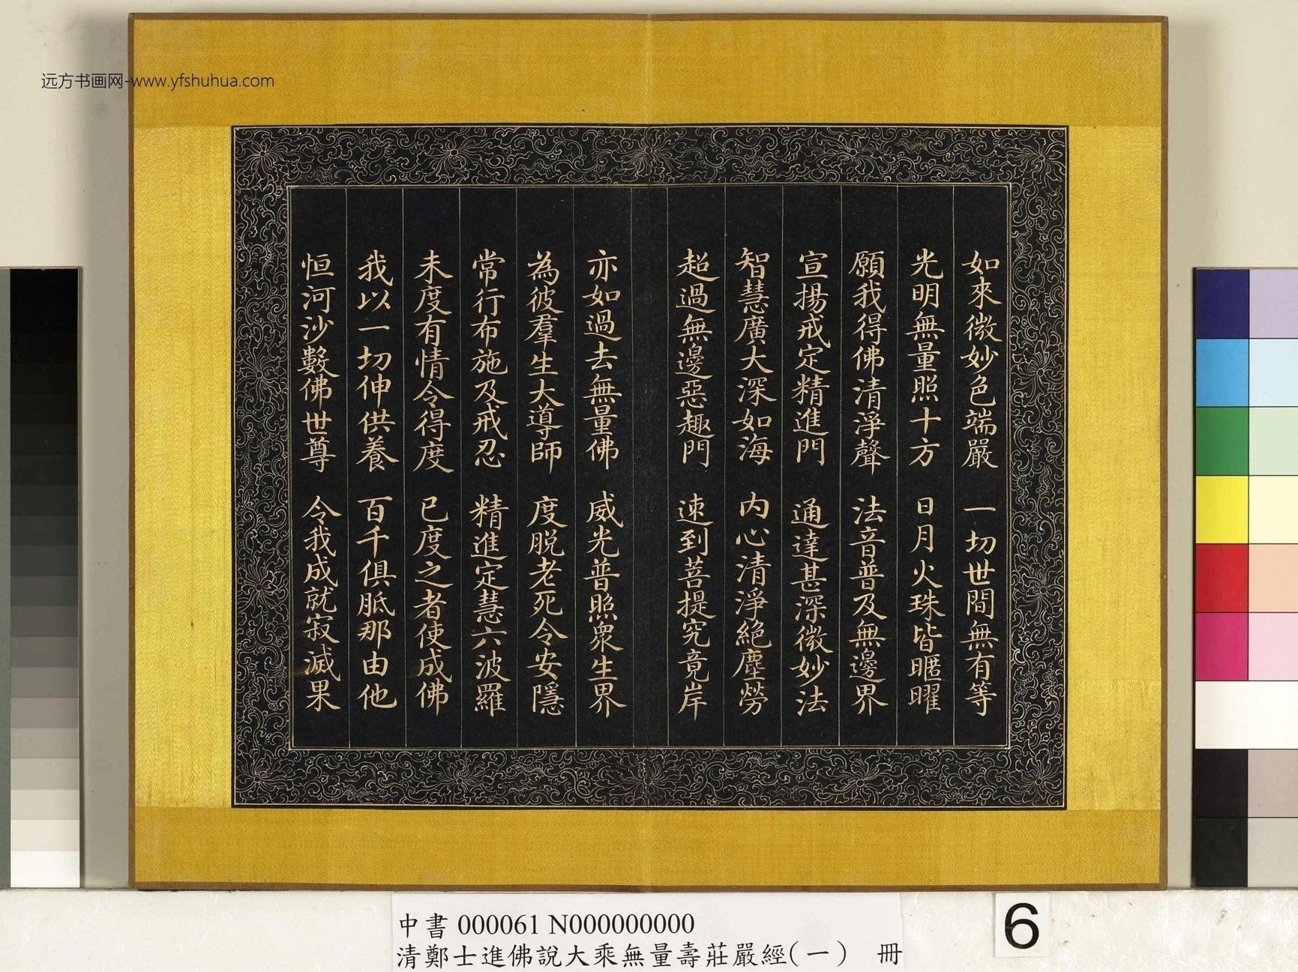 远方书画网-www.yfshuhua.com
如來微妙色端嚴 一切世間無有等
光明無量照十方 日月火珠皆匿曜
願我得佛清淨聲 法音普及無邊界
宣揚戒定精進門 通達甚深微妙法
智慧廣大深如海 内心清淨絕塵勞
超過無邊惡趣門 速到菩提究竟岸
亦如過去無量佛 威光普照衆生界
為彼羣生大導師 度脱老死令安隱
常行布施及戒忍 精進定慧六波羅
未度有情令得度 已度之者使成佛
我以一切伸供養 百千俱胝那由他
恒河沙數佛世尊 令我成就寂滅果
中書 000061 N000000000
清鄭士進佛說大乘無量壽莊嚴經(一) 冊
6